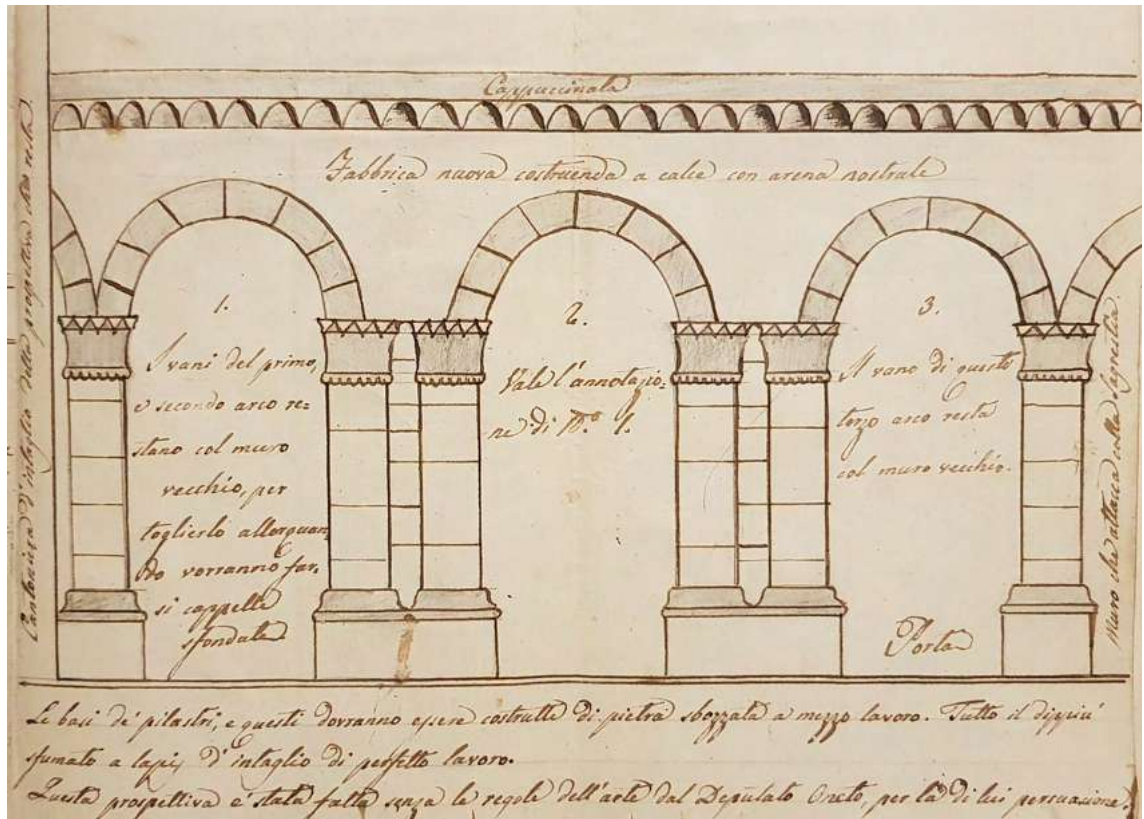 Cappuccinata
Fabbrica nuova costruenda a calce con arena nostrale
Cantoniera d'intaglio della prospettiva che resta
1.
I vani del primo,
e secondo arco re=
stano col muro
vecchio, per
toglierlo allorquan=
do vorranno far=
si cappelle
sfondate
2.
Vale l'annotazio=
ne di N.º 1.
3.
Il vano di questo
terzo arco resta
col muro vecchio.
Porta
muro che attacca colla Sagrestia
Le basi de' pilastri, e questi dovranno essere costrutte di pietra sbozzata a mezzo lavoro. Tutto il dippiù
sfumato a lapis d'intaglio di perfetto lavoro.
Questa prospettiva è stata fatta senza le regole dell'arte dal Deputato Oneto, per la di lui persuasione.